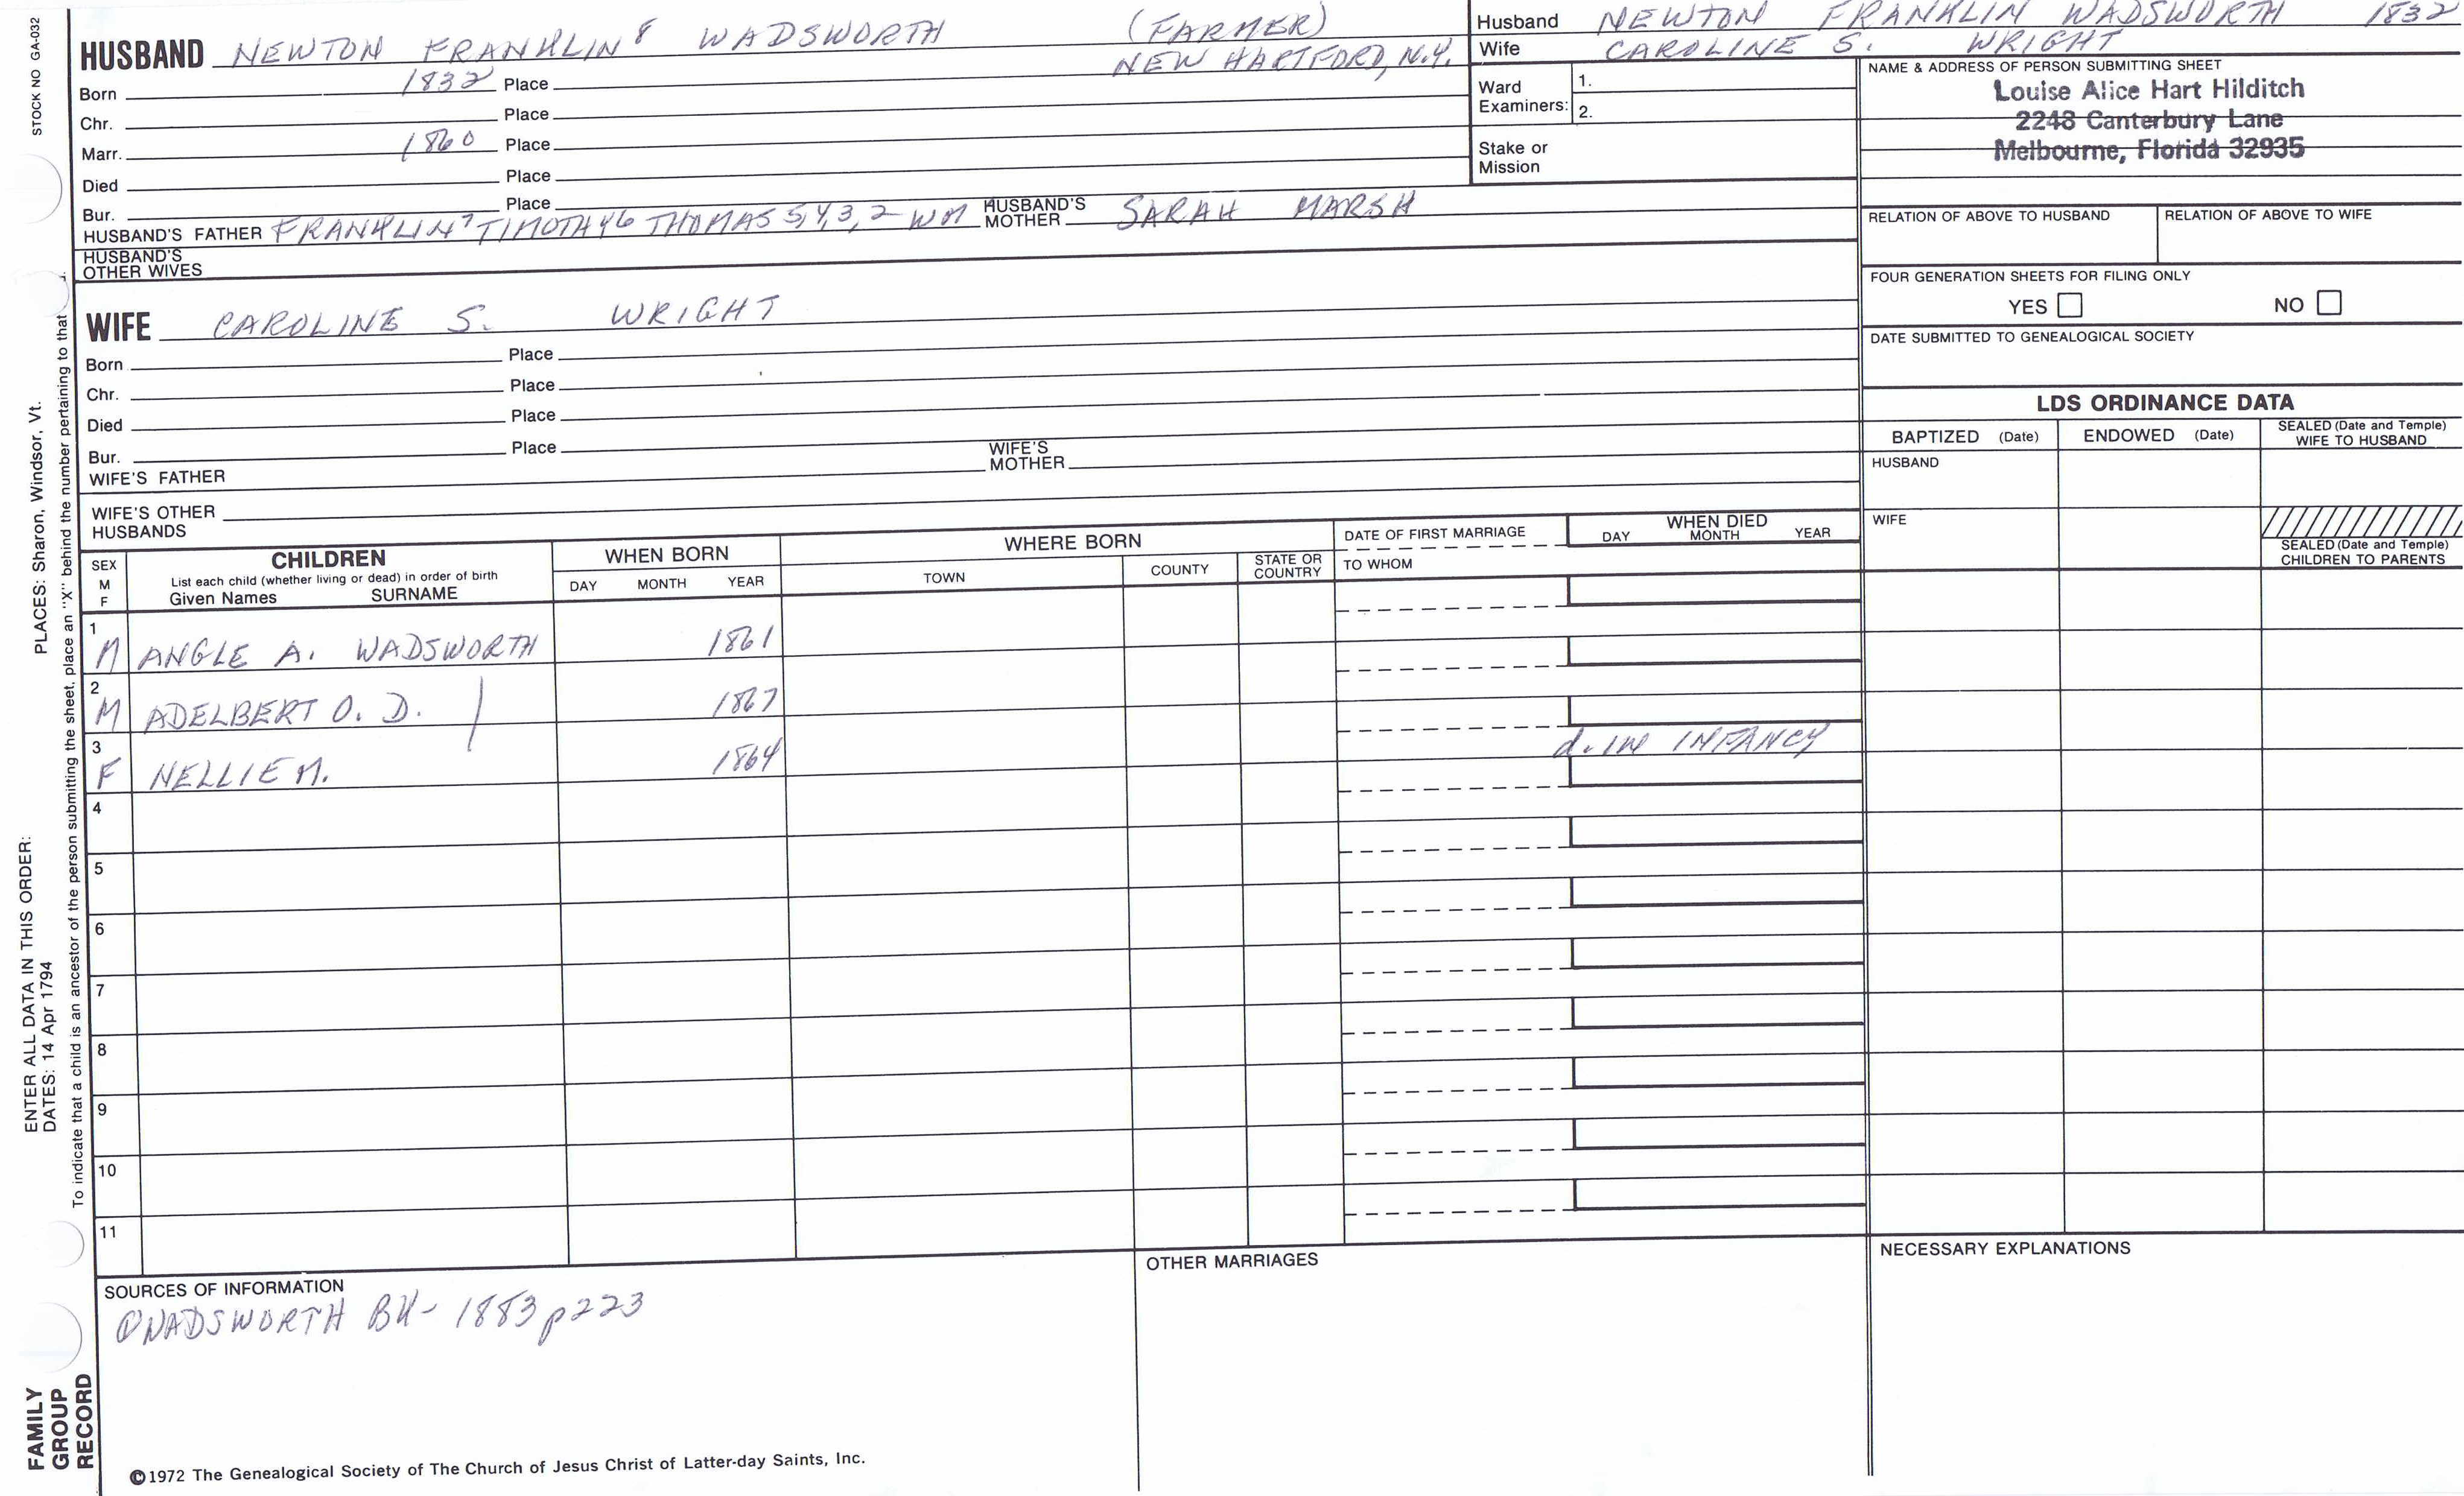 STOCK NO GA-032
PLACES: Sharon, Windsor, Vt.
ENTER ALL DATA IN THIS ORDER:
DATES: 14 Apr 1794
To indicate that a child is an ancestor of the person submitting the sheet, place an "X" behind the number pertaining to that
FAMILY GROUP RECORD
HUSBAND NEWTON FRANKLIN 8 WADSWORTH (FARMER)
Born 1832 Place NEW HARTFORD, N.Y.
Chr. Place
Marr. 1860 Place
Died Place
Bur. Place
HUSBAND'S FATHER FRANKLIN 7 TIMOTHY 6 THOMAS 5,4,3,2 WM HUSBAND'S MOTHER SARAH MARSH
HUSBAND'S OTHER WIVES
WIFE CAROLINE S. WRIGHT
Born Place
Chr. Place
Died Place
Bur. Place
WIFE'S FATHER WIFE'S MOTHER
WIFE'S OTHER HUSBANDS
Husband NEWTON FRANKLIN WADSWORTH 1832
Wife CAROLINE S. WRIGHT
Ward Examiners: 1.
2.
Stake or Mission
NAME & ADDRESS OF PERSON SUBMITTING SHEET
Louise Alice Hart Hilditch
2248 Canterbury Lane
Melbourne, Florida 32935
RELATION OF ABOVE TO HUSBAND RELATION OF ABOVE TO WIFE
FOUR GENERATION SHEETS FOR FILING ONLY
YES NO
DATE SUBMITTED TO GENEALOGICAL SOCIETY
LDS ORDINANCE DATA
BAPTIZED (Date) ENDOWED (Date) SEALED (Date and Temple) WIFE TO HUSBAND
HUSBAND
WIFE
SEALED (Date and Temple) CHILDREN TO PARENTS
SEX M F
CHILDREN
List each child (whether living or dead) in order of birth
Given Names SURNAME
WHEN BORN
DAY MONTH YEAR
WHERE BORN
TOWN COUNTY STATE OR COUNTRY
DATE OF FIRST MARRIAGE
TO WHOM
WHEN DIED
DAY MONTH YEAR
1 M ANGLE A. WADSWORTH 1861
2 M ADELBERT O. D. 1867
3 F NELLIE M. 1864 d. IN INFANCY
4
5
6
7
8
9
10
11
SOURCES OF INFORMATION
① WADSWORTH BK- 1883 p223
OTHER MARRIAGES
NECESSARY EXPLANATIONS
©1972 The Genealogical Society of The Church of Jesus Christ of Latter-day Saints, Inc.